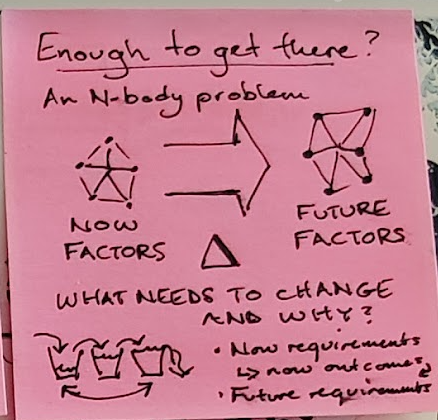 Enough to get there?
An N-body problem
NOW
FACTORS
FUTURE
FACTORS
Δ
WHAT NEEDS TO CHANGE
AND WHY?
• Now requirements
↳ now outcomes
• Future requirements